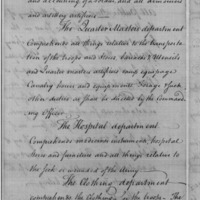 and accounting of stores, and all armourers
and military artificers.
The Quarter Masters department
Comprehends all things relative to the transportation
of the troops and stores Cannon & Utensils
and Quarter masters artificers camp equipage
Cavalry horses and equipments Forage & such
other duties as shall be directed by the Command-
ing Officer
The Hospital department
Comprehends medicines instruments, hospital
stores and furniture and all things relative to
the sick or wounded of the Army
The Clothing department
comprehends the clothing for the troops. The